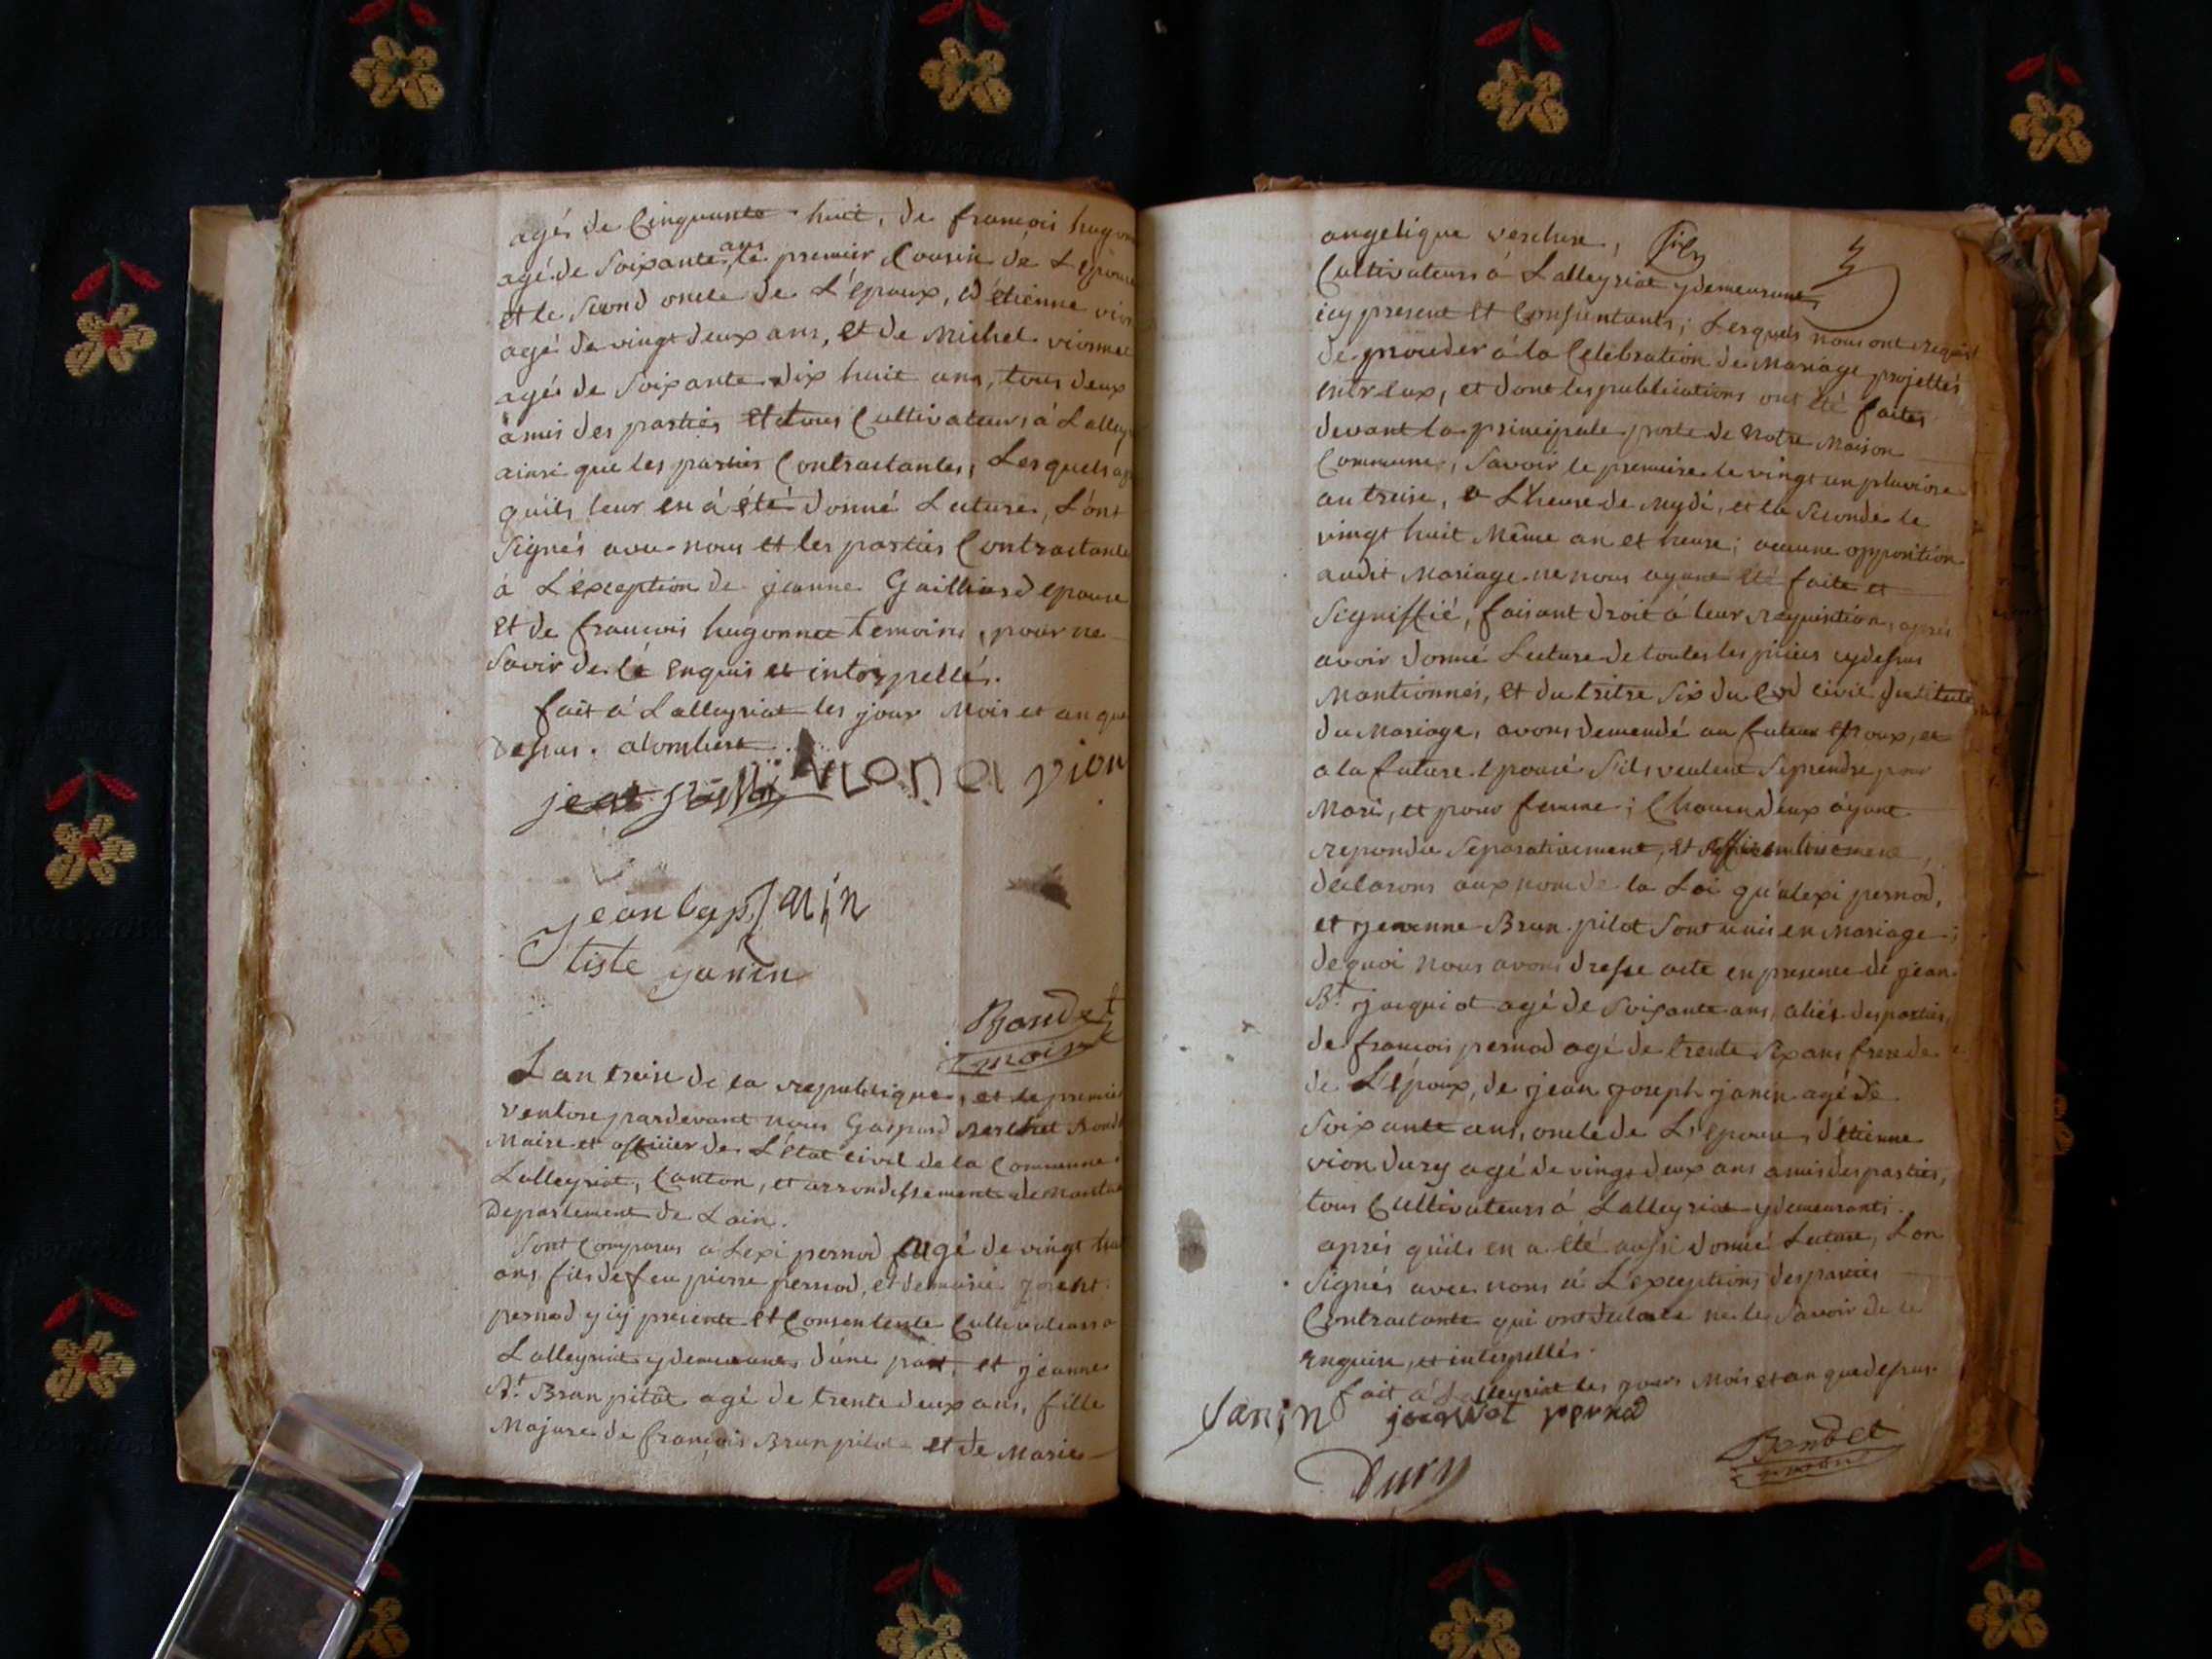 agés de Cinquante huit, de francois hugon
agé de Soixante ans, le premier Cousin de L'Epouse
et le Second oncle de L'epoux, d'étienne vion
agé de vingt deux ans, et de Michel vionnet
agés de Soixante dix huit ans, tous deux
amis des parties et tous Cultivateurs á Lalley
ainsi que les parties Contractantes, Lesquels
quils leur en á été donné Lecture, L'ont
Signés avec nous et les parties Contractante
á L'éxception de jeanne Gailliard epouse
et de francois hugonnet temoins, pour ne
Savoir de lé enquis et interpellés.
fait á Lalleyriat les jour Mois et an que
dessus. alombert
vionet vion
jean bap Janin
tiste janin
Rondet
maire
L an treise de la republique, et le premier
ventose pardevant nous Gaspard Berthet Bond
Maire et officier de L'état civil de la Commune
Lalleyriat, Canton, et arrondissement de Nantua
Departement de Lain.
Sont Comparus alexi pernod agé de vingt huit
ans fils de feu pierre pernod, et de marie
pernod y cy presente et Consentente Cultivateurs a
Lalleyriat y demeurant, d'une part, et jeanne
Bt. Brun pilot agé de trente deux ans, fille
Majure de francois Brun pilot et de Marie
angelique verchere,
Cultivateurs á Lalleyriat y demeurant
icy present et Consentants; Lesquels nous ont requis
de proceder á la Celebration de Mariage projettés
entr'eux, et dont les publications ont été faites
devant la principale porte de notre Maison
Commune, Savoir le premiere le vingt un pluviose
an treise, a L'heure de Mydi, et la Seconde le
vingt huit Même an et heure; aucune opposition
audit Mariage ne nous ayant été faite et
Signiffié, faisant droit á leur requisition, aprés
avoir donné Lecture de toutes les piéces cy dessus
Mantionnés, et du tritre Six du Cod civil
du Mariage, avons demendé au futeur Epoux, et
a la future Epouse S'ils veulent Seprendre pour
Mari, et pour femme; Chacun d'eux ayant
repondu Separativement, et affirmativement,
déclarons aux nom de la Loi qu'alexi pernod,
et jeanne Brun pilot Sont unis en Mariage;
de quoi nous avons dresse acte en presence de jean
Bt. jacquiot agé de Soixante ans, aliés des parties,
de francois pernod agé de trente Six ans frere de
de L'époux, de jean joseph janin agé de
Soixante ans, oncle de L'epouse, d'étienne
vion dury agé de vingt deux ans amis des parties,
tous Cultivateurs á Lalleyriat y demeurants.
aprés qu'ils en a été aussi donné Lecture, Lon
Signés avec nous á L'exceptions des parties
Contractante qui ont declaré ne le Savoir de le
enquise, et interpellés.
fait á Lalleyriat les jours Mois et an que dessus.
Janin jacquiot pernod
Dury
Bondet
maire